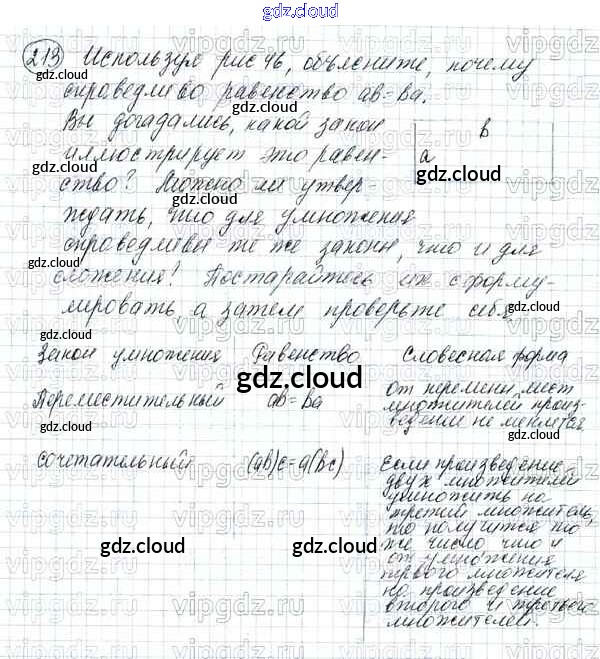 gdz.cloud
213 Используя рис 46, объясните, почему
справедливо равенство ab=ba.
Вы догадались, какой закон
иллюстрирует это равен-
ство? Можно ли утвер-
ждать, что для умножения
справедливы те же законы, что и для
сложения! Постарайтесь их сформу-
лировать, а затем проверьте себя.
b
a
Закон умножения Равенство Словесная форма
Переместительный ab=ba От перемены мест
множителей произ-
ведение не меняется.
сочетательный (ab)c=a(bc) Если произведение
двух множителей
умножить на
третий множитель,
то получится то
же число что и
от умножения
первого множителя
на произведение
второго и третьего
множителей.
gdz.cloud
vipgdz.ru